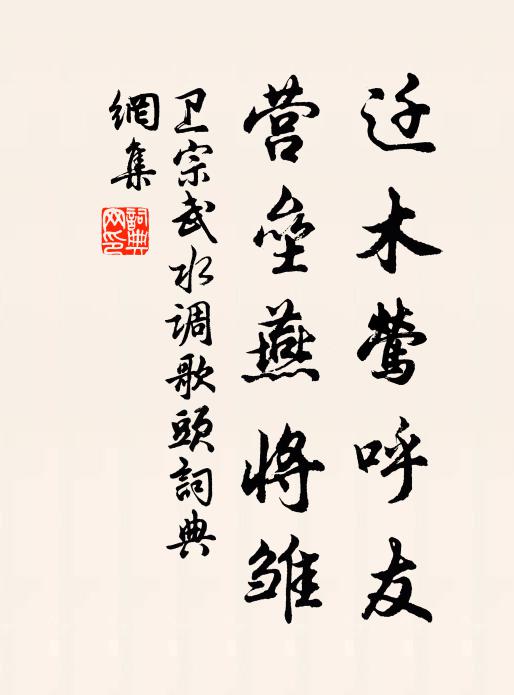 迁木莺呼友
营垒燕将雏
卫宗武水调歌頭詞典
網集
詞典网印